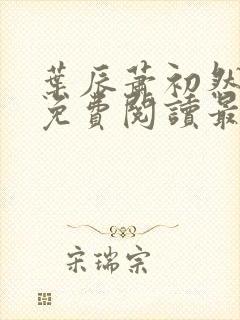 葉辰蕭初然
免費閱讀最
宋瑞宗